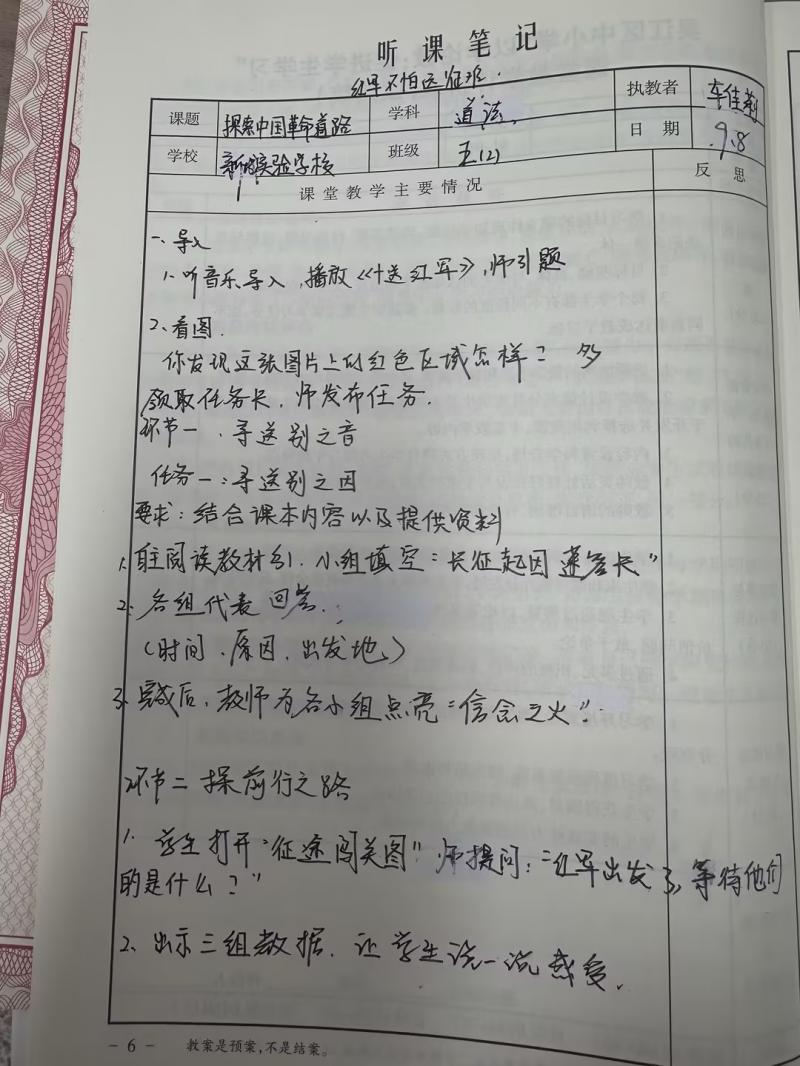 听课笔记
红军不怕远征难.
课题 探索中国革命道路 学科 道法. 执教者 车佳
学校 实验学校 班级 五(2) 日期 9.8
课堂教学主要情况 反思
一、导入
1. 听音乐导入,播放《十送红军》,师引题
2、看图.
你发现这张图片上的红色区域怎样? 多
领取任务长. 师发布任务.
环节一、寻送别之音
任务一:寻送别之因
要求:结合课本内容以及提供资料
1. 自主阅读教材, 小组填空“长征起因”
2. 各组代表回答.
(时间、原因、出发地、)
3. 完成后,教师为各小组点亮“信念之火”.
环节二 探前行之路
1. 学生打开“征途闯关图”师提问:“红军出发了,等待他们
的是什么?”
2. 出示三组数据. 让学生说一说感受.
- 6 - 教案是预案,不是结案。